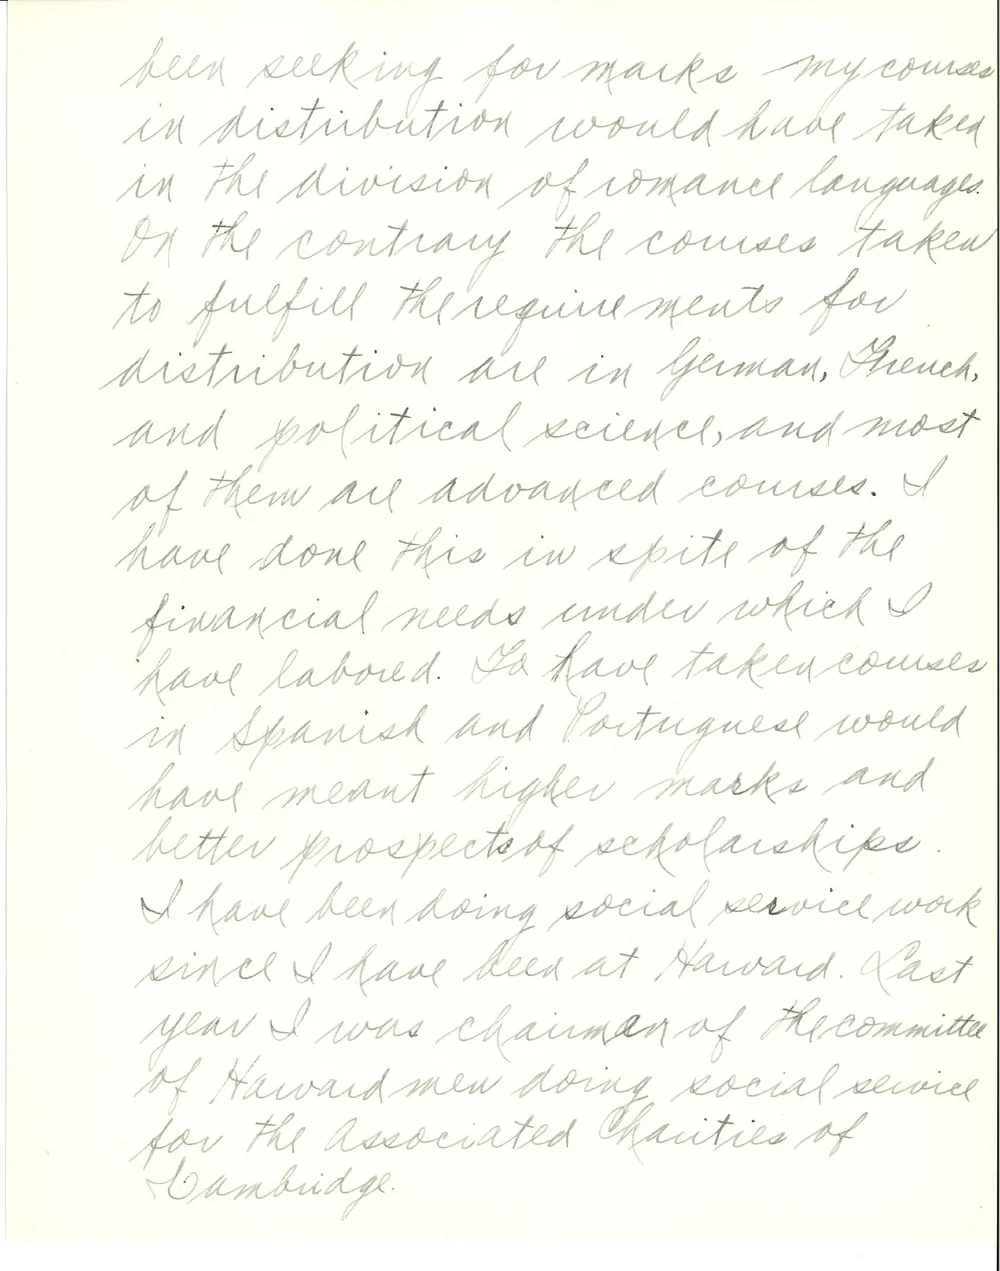 been seeking for marks my courses
in distribution would have taken
in the division of romance languages.
On the contrary the courses taken
to fulfill the requirements for
distribution are in German, French,
and political science, and most
of them are advanced courses. I
have done this in spite of the
financial needs under which I
have labored. To have taken courses
in Spanish and Portuguese would
have meant higher marks and
better prospects of scholarships.
I have been doing social service work
since I have been at Harvard. Last
year I was chairman of the committee
of Harvard men doing social service
for the Associated Charities of
Cambridge.